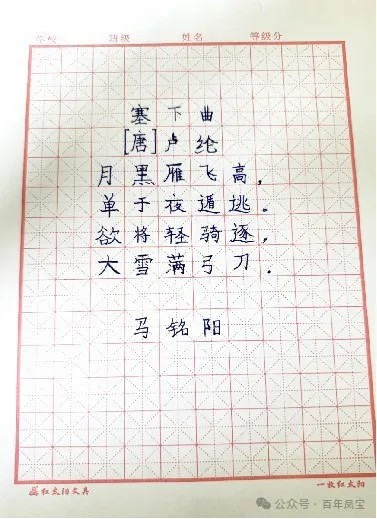 学校 班级 姓名 等级分
塞下曲
[唐]卢纶
月黑雁飞高,
单于夜遁逃.
欲将轻骑逐,
大雪满弓刀.
马铭阳
红太阳文具 一牧红太阳
公众号·百年凤宝